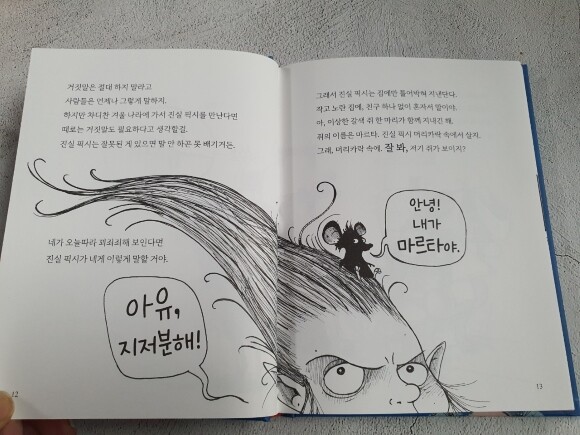 거짓말은 절대 하지 말라고
사람들은 언제나 그렇게 말하지.
하지만 차디찬 겨울 나라에 가서 진실 픽시를 만난다면
때로는 거짓말도 필요하다고 생각할걸.
진실 픽시는 잘못된 게 있으면 말 안 하곤 못 배기거든.
네가 오늘따라 꾀죄죄해 보인다면
진실 픽시가 네게 이렇게 말할 거야.
아유,
지저분해!
12
그래서 진실 픽시는 집에만 틀어박혀 지낸단다.
작고 노란 집에, 친구 하나 없이 혼자서 말이야.
아, 이상한 갈색 쥐 한 마리가 함께 지내긴 해.
쥐의 이름은 마르타. 진실 픽시 머리카락 속에서 살지.
그래, 머리카락 속에. 잘 봐, 저기 쥐가 보이지?
안녕!
내가
마르타야.
13